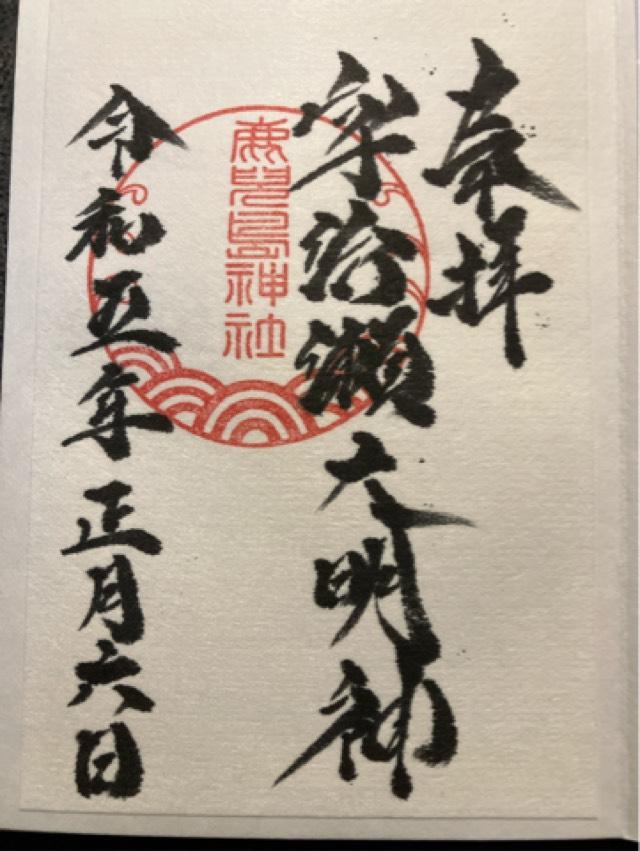 奉拝
宇治瀬大明神
鹿児島神社
令和五年正月六日